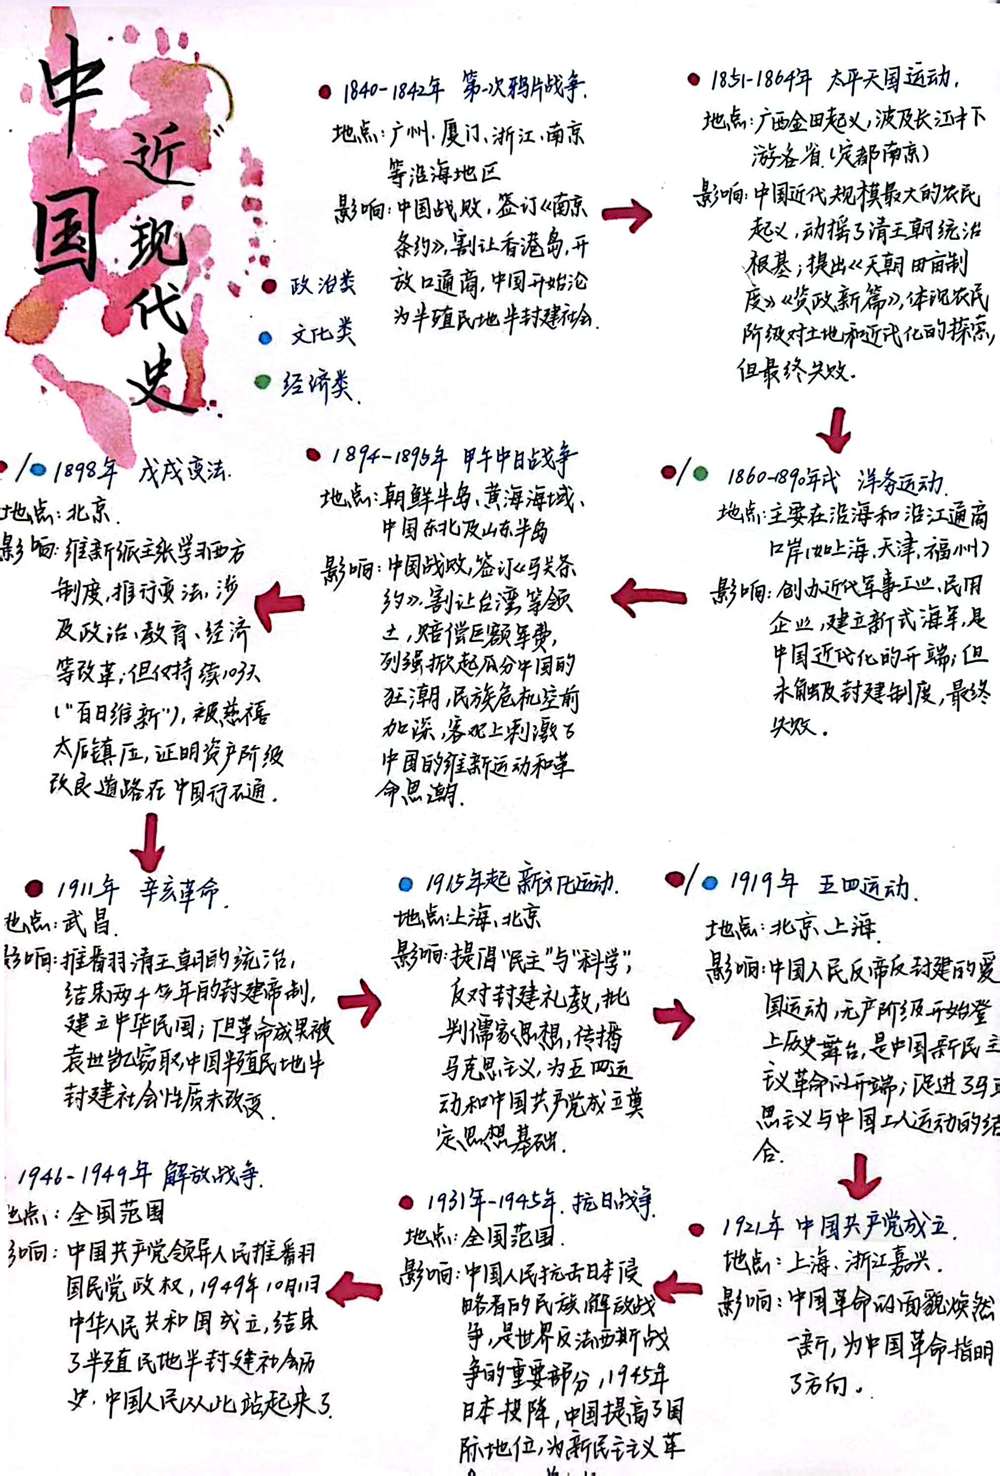 中国
近现代史
政治类
文化类
经济类
1840-1842年 第一次鸦片战争.
地点:广州、厦门、浙江、南京
等沿海地区
影响:中国战败,签订《南京
条约》,割让香港岛,开
放口通商,中国开始沦
为半殖民地半封建社会.
1851-1864年 太平天国运动.
地点:广西金田起义,波及长江中下
游各省(定都南京)
影响:中国近代规模最大的农民
起义,动摇了清王朝统治
根基;提出《天朝田亩制
度》《资政新篇》,体现农民
阶级对土地和近代化的探索,
但最终失败.
1860-1890年代 洋务运动.
地点:主要在沿海和沿江通商
口岸(如上海、天津、福州)
影响:创办近代军事工业、民用
企业,建立新式海军,是
中国近代化的开端;但
未触及封建制度,最终
失败.
1894-1895年 甲午中日战争
地点:朝鲜半岛、黄海海域、
中国东北及山东半岛
影响:中国战败,签订《马关条
约》,割让台湾等领
土,赔偿巨额军费,
列强掀起瓜分中国的
狂潮,民族危机空前
加深,客观上刺激了
中国的维新运动和革
命思潮.
1898年 戊戌变法.
地点:北京.
影响:维新派主张学习西方
制度,推行变法,涉
及政治、教育、经济
等改革;但仅持续103天
("百日维新"),被慈禧
太后镇压,证明资产阶级
改良道路在中国行不通.
1911年 辛亥革命.
地点:武昌.
影响:推翻清王朝的统治,
结束两千多年的封建帝制,
建立中华民国;但革命成果被
袁世凯窃取,中国半殖民地半
封建社会性质未改变.
1915年起 新文化运动.
地点:上海、北京
影响:提倡"民主"与"科学",
反对封建礼教,批
判儒家思想,传播
马克思主义,为五四运
动和中国共产党成立奠
定思想基础.
1919年 五四运动.
地点:北京、上海.
影响:中国人民反帝反封建的爱
国运动,无产阶级开始登
上历史舞台,是中国新民主
主义革命的开端;促进了马克
思主义与中国工人运动的结
合.
1921年 中国共产党成立.
地点:上海、浙江嘉兴.
影响:中国革命的面貌焕然
一新,为中国革命指明
了方向。
1931年-1945年.抗日战争.
地点:全国范围.
影响:中国人民抗击日本侵
略者的民族解放战
争,是世界反法西斯战
争的重要部分,1945年
日本投降,中国提高了国
际地位,为新民主主义革
1946-1949年 解放战争.
地点:全国范围
影响:中国共产党领导人民推翻
国民党政权,1949年10月1日
中华人民共和国成立,结束
了半殖民地半封建社会历
史.中国人民从此站起来了.